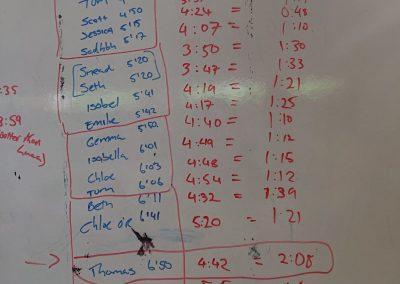 Scott 4'50
Jessica 5'15 4:24 = 0:48
Sadhbh 5'17 4:07 = 1:10
Sinead 5'20 3:50 = 1:30
Seth 5'20 3:47 = 1:33
Isobel 5'41 4:19 = 1:21
Emilie 5'42 4:17 = 1:25
Gemma 5'50 4:40 = 1:10
Isabella 6'01 4:49 = 1:12
Chloe 6'03 4:48 = 1:15
6'06 4:54 = 1:12
Beth 6'11 4:32 = 1:39
Chloe OR 6'41 5:20 = 1:21
→ Thomas 6'50 4:42 = 2:08
:35
3:59